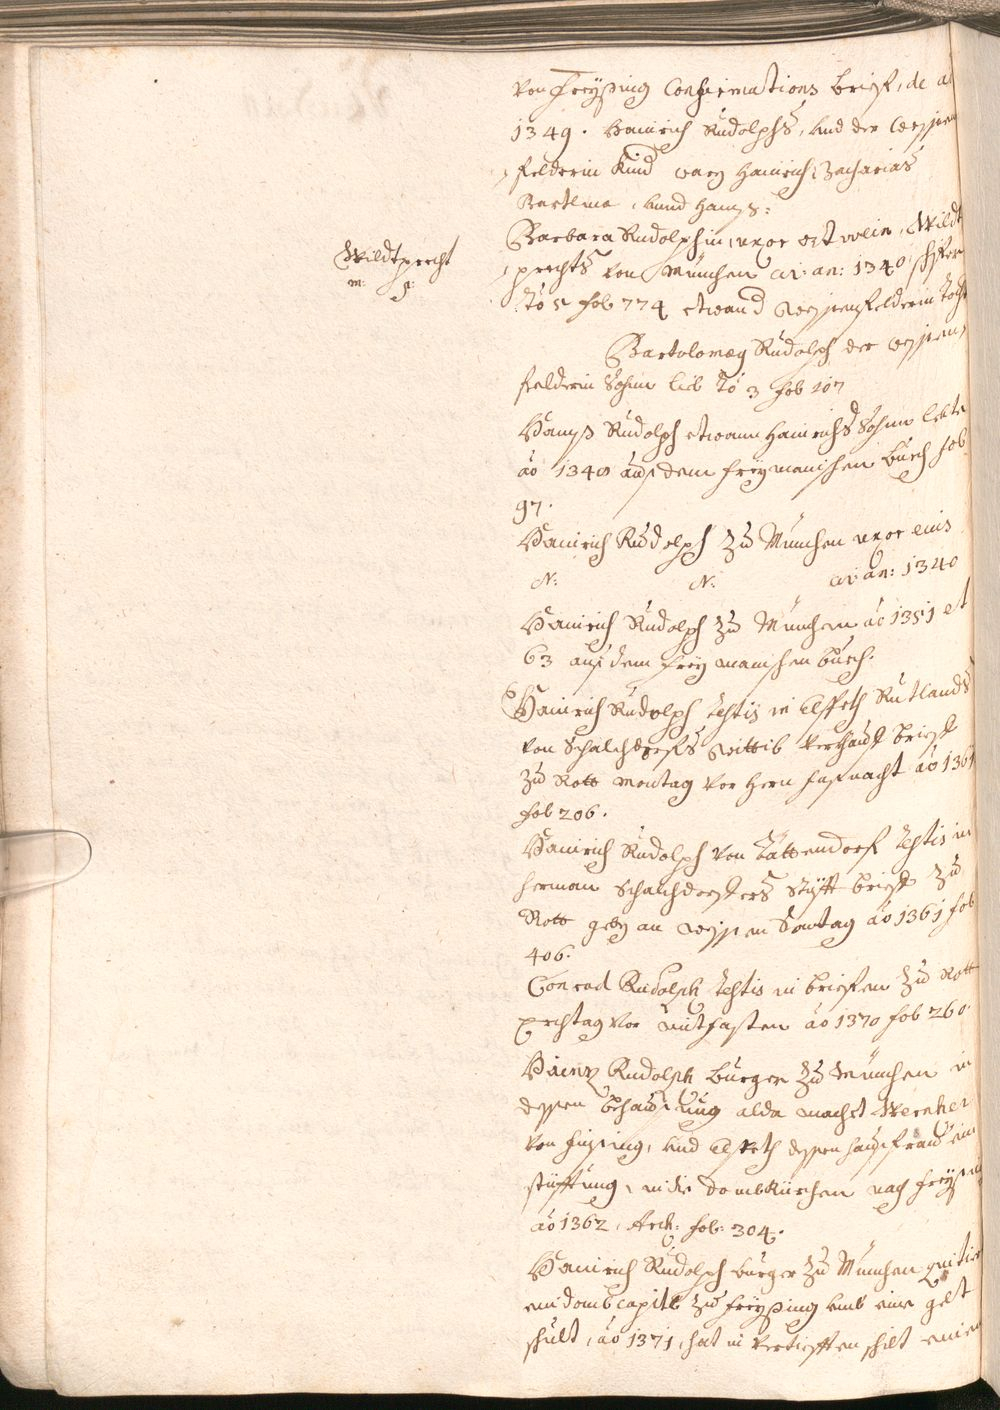 von Freyßing Confirmations brief, de a
1349. Hainrich Rudolphs, vnd der Wespen
felderin Kind warn Hainrich, Zacharias
Bartlme, vnnd Hanß:
Barbara Rudolphin, uxor Ortwein, Wildt
Wildtprecht
m: S:
prechts von München ai: an: 1340
To 5 fol 774 etwand Wespenfelderin Tocht
Bartolomeg Rudolph der Wespen
felderin Sohn lib To 3 fol 107
Hanß Rudolph etwann Hainrichs Sohn lebte
ao 1340 auß dem freymanischen buech fol
97.
Hainrich Rudolph zu München uxor eius
N: N: ai: an: 1340
Hainrich Rudolph zu München ao 1351 et
63 auß dem freymanischen buech.
Hainrich Rudolph testis in Elspeth Rutlands
von Schalchdorfs wittib verkhauf brieff
zu Rott Montag vor Hern faßnacht ao 1361
fol 206.
Hainrich Rudolph von Tättendorf testis in
Herman Schalchdorffers stifft brieff zu
Rott geben an weyssen Sontag ao 1361 fol
406.
Conrad Rudolph testis in briefen zu Rott
Erchtag vor mitfasten ao 1370 fol 260.
Hainz Rudolph burger zu München in
dessen behausung alda macht Wernher
von vnd Elspeth dessen haußfrau ein
stüfftung, in die Dombkürchen nach Freysing
ao 1362, Arch: fol: 304.
Hainrich Rudolph burger zu München quitier
ein dombcapitl zu Freyßing vmb eine gelt
schult, ao 1371, hat in vertiefften schilt einen